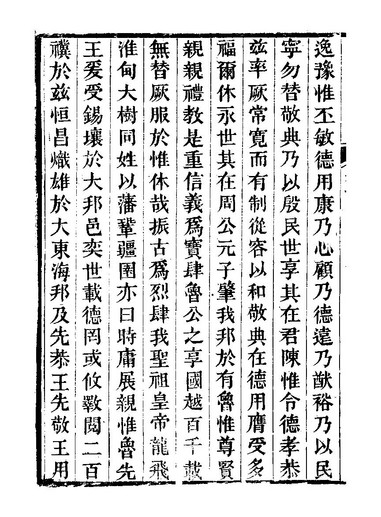 逸豫惟丕敏德用康乃心顧乃德遠乃猷裕乃以民
寧勿替敬典乃以殷民世享其在君陳惟令德孝恭
兹率厥常寬而有制從容以和敬典在德用膺受多
福爾休永世其在周公元子肇我邦於有魯惟尊賢
親親禮教是重信義爲寶肆魯公之享國越百千載
無替厥服於惟休哉振古爲烈肆我聖祖皇帝龍飛
淮甸大樹同姓以藩鞏疆圉亦曰時庸展親惟魯先
王爰受錫壤於大邦邑奕世載德罔或攸斁閱二百
禩於兹恒昌熾雄於大東海邦及先恭王先敬王用